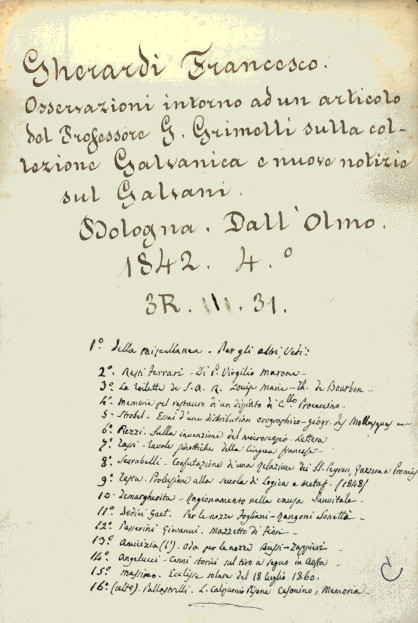 Gherardi Francesco.
Osservazioni intorno ad un articolo
del Professore G. Grimelli sulla col-
lezione Galvanica e nuove notizie
sul Galvani.
Bologna. Dall'Olmo.
1842. 4.º
3R. III. 31.
1º della miscellanea. Per gli altri vedi:
2º. Resti Ferrari - Di P. Virgilio Marona -
3º. La toilette de S. A. R. Louise Marie - Th. de Bourbon -
4º Memoria pel restauro di un dipinto di C.llo Procaccino -
5 - Strobel. Essai d'une distribution orographico-géogr. des Mollusques
6º Rezzi. Sulla invenzione del microscopio. Lettera
7º - Tavole sinottiche della lingua francese -
8º Scarabelli - Confutazione di una Relazione dei SS. Peyron, Gazzera Promis
9º Testa. Prolusione alla scuola di Logica e Metaf. (1848)
10 - Demargherita - Ragionamento nella causa Sanvitale -
11º Gaet. Per le nozze Fogliani - Rangoni Sonetti -
12º Passerini Giovanni. Mazzetto di Fiori -
13º Amicizia (l'). Oda per le nozze Bussi -
14º Angelucci - Cenni storici sul tiro a segno in
15º Massimo. Ecclisse solare del 18 luglio 1860.
16º (culto). Pallastrelli. L. Calpurnio Pisone Cesonino, Memoria -